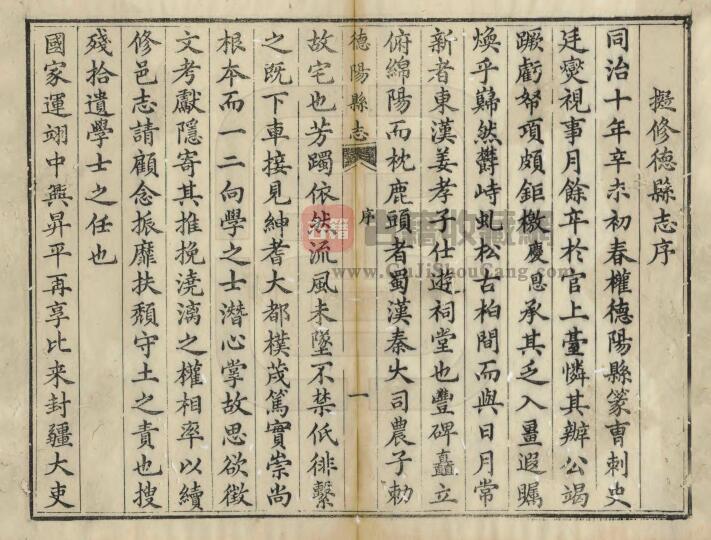 擬修德縣志序
同治十年辛未初春權德陽縣篆曹刺史
廷燮視事月餘卒於官上臺憐其辦公竭
蹶虧帑項頗鉅檄慶恩承其乏入畺遐矚
煥乎巋然欝峙虬松古柏間而與日月常
新者東漢姜孝子仕遊祠堂也豐碑矗立
俯綿陽而枕鹿頭者蜀漢秦大司農子勅
故宅也芳躅依然流風未墜不禁低徘繫
之既下車接見紳耆大都樸茂篤實崇尚
根本而一二向學之士潛心掌故思欲徵
文考獻隱寄其推挽澆漓之權相率以續
修邑志請顧念振靡扶頹守土之責也搜
殘拾遺學士之任也
國家運翊中興昇平再享比来封疆大吏
德陽縣志 序 一
古籍收藏網
www.GuJiShouCang.com
古籍